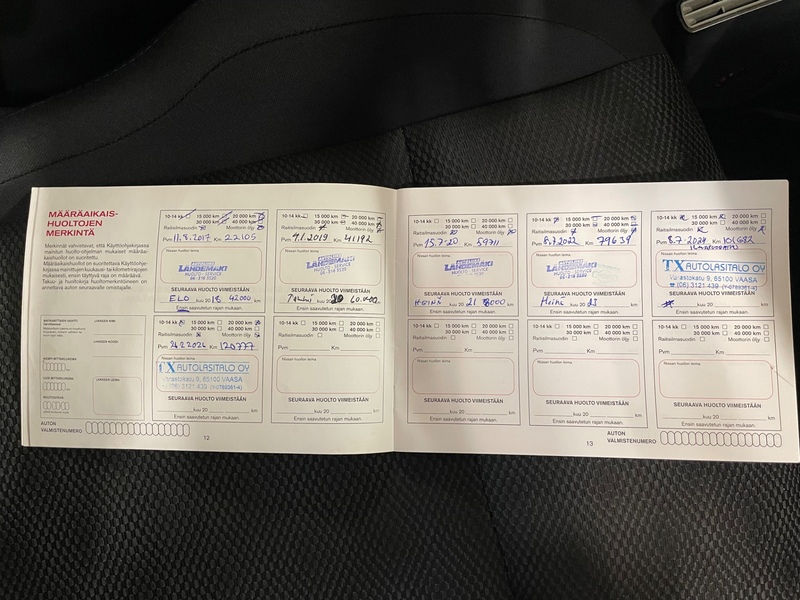 MÄÄRÄAIKAIS-
HUOLTOJEN
MERKINTÄ
Merkinnät vahvistavat, että Käyttöohjekirjassa
mainitun huolto-ohjelman mukaiset määräai-
kaishuollot on suoritettu.
Määräaikaishuollot on suoritettava Käyttöohje-
kirjassa mainittujen kuukausi- tai kilometrirajojen
mukaisesti, ensin täyttyvä raja on määräävä.
Takuu- ja huoltokirja huoltomerkintöineen on
annettava auton seuraavalle omistajalle.
AUTON
VALMISTENUMERO
10-14 kk 15 000 km 20 000 km
30 000 km 40 000 km
Raitisilmasuodin Moottorin öljy
Pvm 11.8.2017 Km 22.105
Nissan huollon leima
LÄNDEMÄKI
HUOLTO-SERVICE
SEURAAVA HUOLTO VIIMEISTÄÄN
ELO kuu 20 18 42000 km
Ensin saavutetun rajan mukaan.
10-14 kk 15 000 km 20 000 km
30 000 km 40 000 km
Raitisilmasuodin Moottorin öljy
Pvm 4.1.2019 Km 41192
Nissan huollon leima
LÄNDEMÄKI
HUOLTO-SERVICE
SEURAAVA HUOLTO VIIMEISTÄÄN
kuu 20 60.000 km
Ensin saavutetun rajan mukaan.
10-14 kk 15 000 km 20 000 km
30 000 km 40 000 km
Raitisilmasuodin Moottorin öljy
Pvm Km 120777
TX AUTOLASITALO OY
65100 VAASA
(06) 3121 439
SEURAAVA HUOLTO VIIMEISTÄÄN
kuu 20 km
Ensin saavutetun rajan mukaan.
10-14 kk 15 000 km 20 000 km
30 000 km 40 000 km
Raitisilmasuodin Moottorin öljy
Pvm Km
Nissan huollon leima
SEURAAVA HUOLTO VIIMEISTÄÄN
kuu 20 km
Ensin saavutetun rajan mukaan.
12
10-14 kk 15 000 km 20 000 km
30 000 km 40 000 km
Raitisilmasuodin Moottorin öljy
Pvm 15.7.20 Km 59711
Nissan huollon leima
LÄNDEMÄKI
HUOLTO-SERVICE
SEURAAVA HUOLTO VIIMEISTÄÄN
HEINÄ kuu 20 21 8000 km
Ensin saavutetun rajan mukaan.
10-14 kk 15 000 km 20 000 km
30 000 km 40 000 km
Raitisilmasuodin Moottorin öljy
Pvm 8.7.2022 Km 79639
Nissan huollon leima
LÄNDEMÄKI
HUOLTO-SERVICE
SEURAAVA HUOLTO VIIMEISTÄÄN
Heinä kuu 20 23 km
Ensin saavutetun rajan mukaan.
10-14 kk 15 000 km 20 000 km
30 000 km 40 000 km
Raitisilmasuodin Moottorin öljy
Pvm Km 101682
TX AUTOLASITALO OY
65100 VAASA
(06) 3121 439
SEURAAVA HUOLTO VIIMEISTÄÄN
kuu 20 km
Ensin saavutetun rajan mukaan.
10-14 kk 15 000 km 20 000 km
30 000 km 40 000 km
Raitisilmasuodin Moottorin öljy
Pvm Km
Nissan huollon leima
SEURAAVA HUOLTO VIIMEISTÄÄN
kuu 20 km
Ensin saavutetun rajan mukaan.
10-14 kk 15 000 km 20 000 km
30 000 km 40 000 km
Raitisilmasuodin Moottorin öljy
Pvm Km
Nissan huollon leima
SEURAAVA HUOLTO VIIMEISTÄÄN
kuu 20 km
Ensin saavutetun rajan mukaan.
10-14 kk 15 000 km 20 000 km
30 000 km 40 000 km
Raitisilmasuodin Moottorin öljy
Pvm Km
Nissan huollon leima
SEURAAVA HUOLTO VIIMEISTÄÄN
kuu 20 km
Ensin saavutetun rajan mukaan.
13
AUTON
VALMISTENUMERO